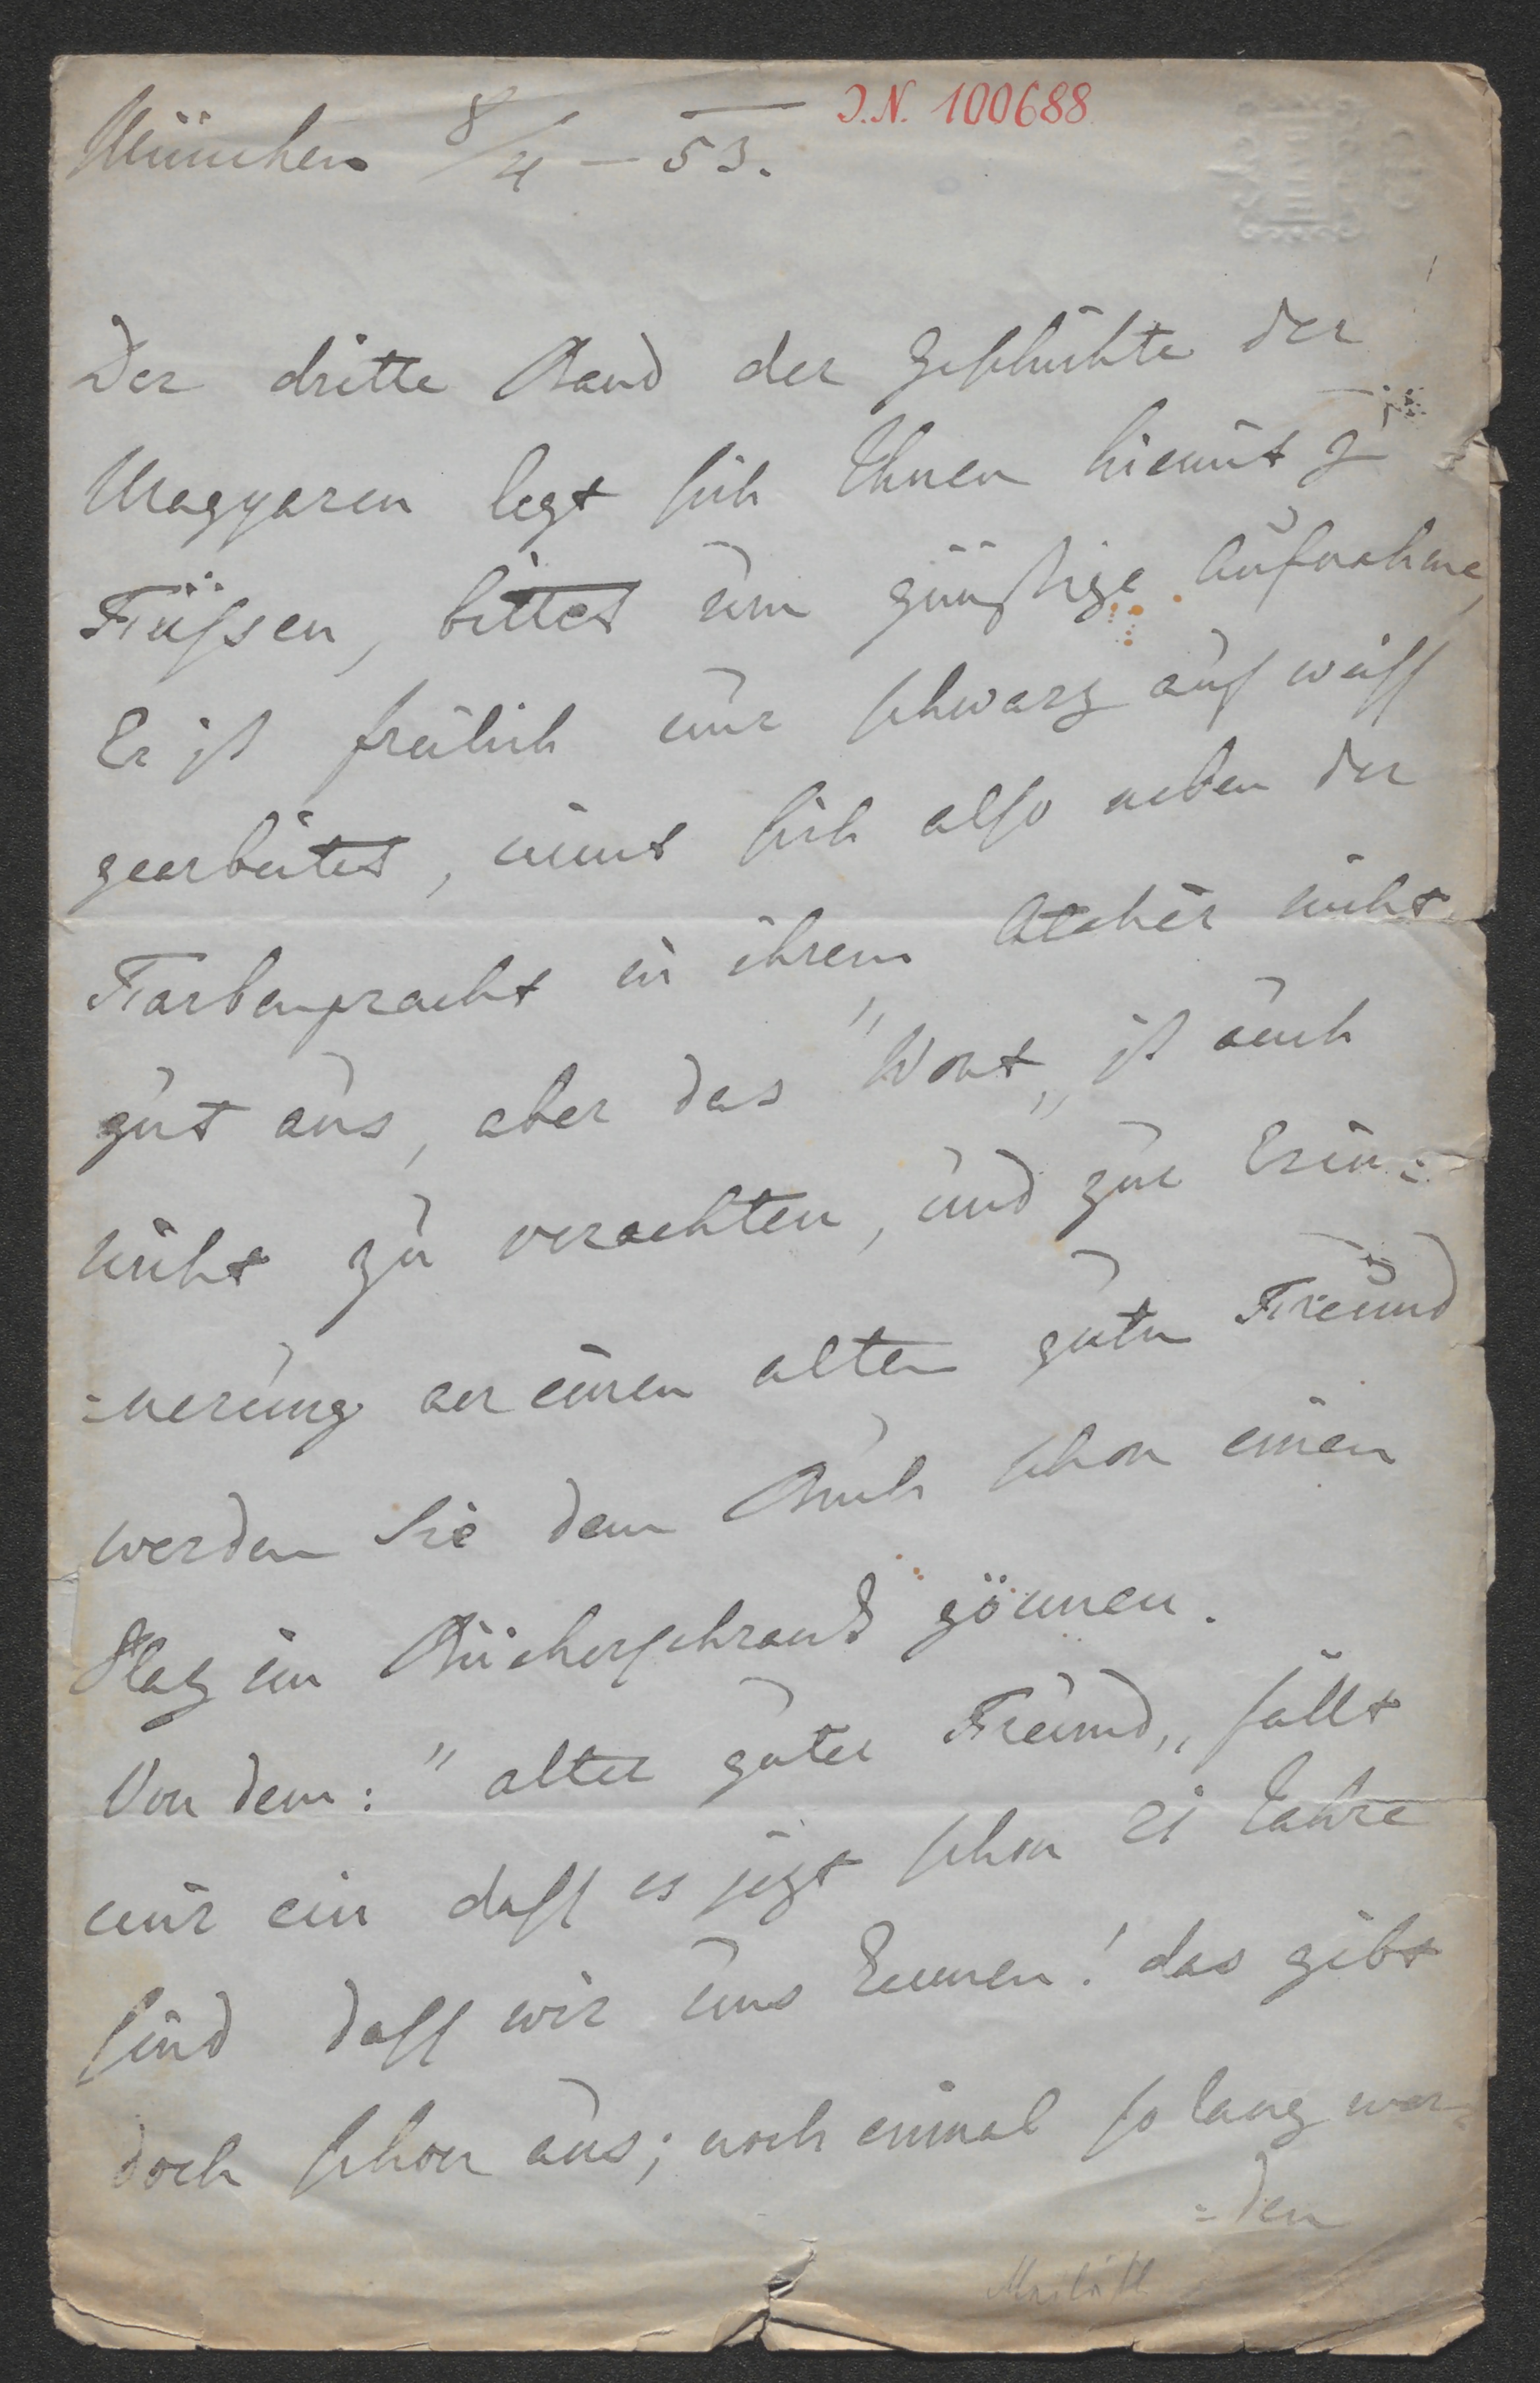 München 8/4 – 53.
J.N. 100688
Der dritte Band der Geschichte der
Magyaren legt sich Ihnen hiemit z
Füssen, bittet um günstige Aufnahme,
Er ist freilich nur schwarz auf weiss
gearbeitet, nimt sich also neben der
Farbenpracht in ihrem Atelier nicht
gut aus, aber das "Wort„ ist auch
nicht zu verachten, und zur Erin=
=nerung an einen alten guten Freund
werden Sie dem Buch schon einen
Plaz im Bücherschrank gönnen.
Von dem: "alter guter Freund„ fällt
mir ein dass es jezt schon 21 Jahre
sind dass wir uns kennen! das gibt
doch schon aus; noch einmal so lang wer=
=den
Mailáth